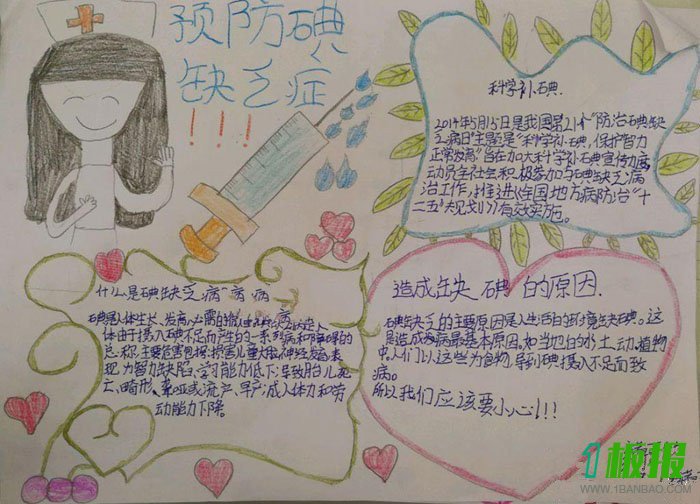 预防碘
缺乏症
!!!
科学补碘.
2014年5月15日是我国第21个“防治碘缺
乏病日”主题是“科学补碘,保护智力
正常发育”旨在加大科学补碘宣传力度,
动员全社会积极参加与碘缺乏病
治工作,推进全国地方病防治“十
二五”规划》有效实施。
什么是碘缺乏病
碘是人体生长、发育必需的微量
体由于摄入碘不足而产生的一系列病和障碍的
总称,主要危害包括:损害儿童大脑神经发育,表
现为智力缺陷、学习能力低下;导致胎儿死
亡、畸形、聋哑或流产、早产;成人体力和劳
动能力下降。
造成缺 碘 的原因.
碘缺乏的主要原因是人生活的环境缺碘。这
是造成病最基本原因。如当地的水、土、动、植物
中,人们以这些为食物,导致碘摄入不足而致
病。
所以我们应该要小心!!!
1板报
WWW.1BANBAO.COM